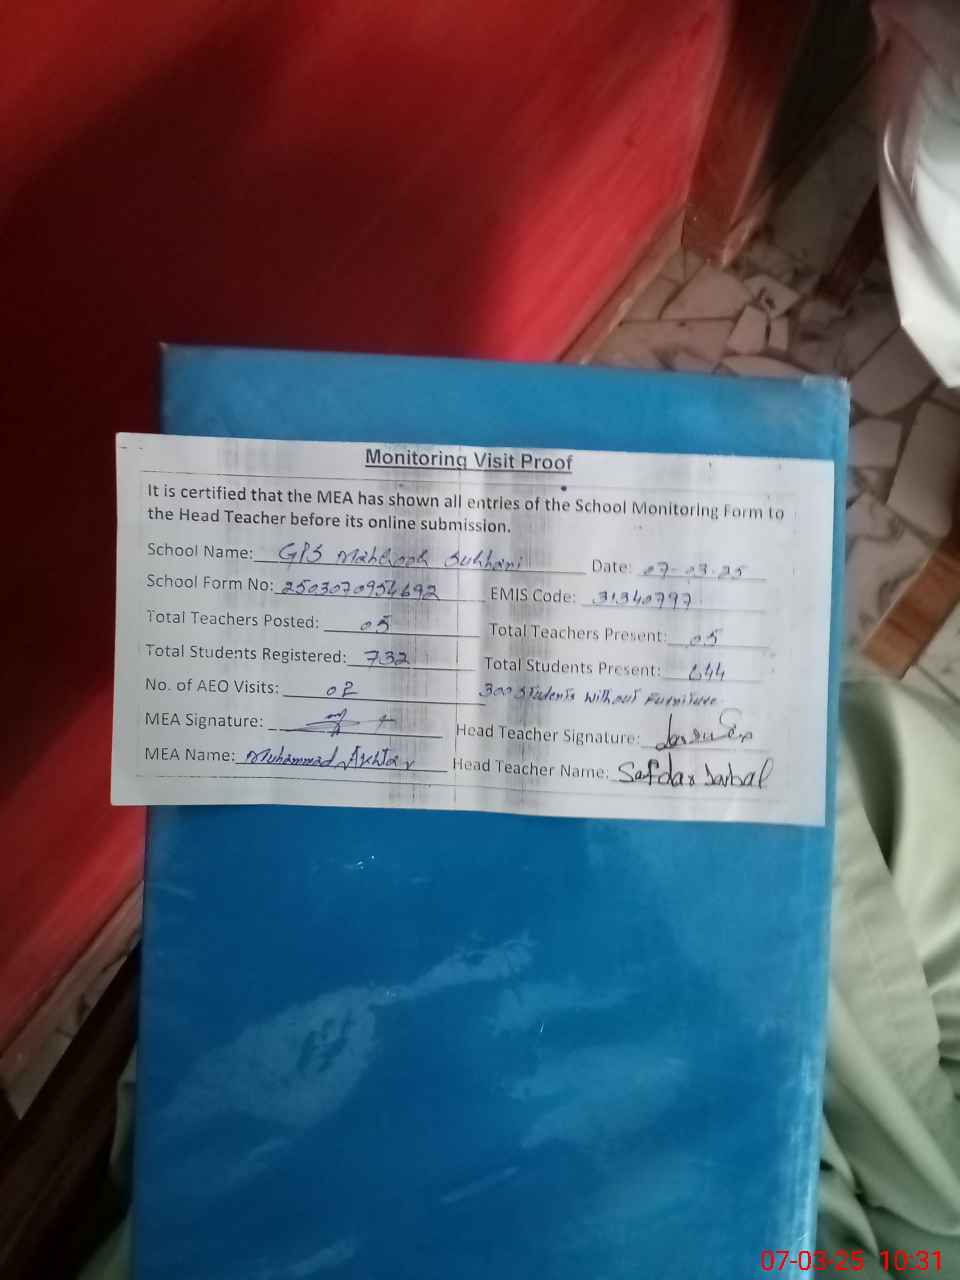 Monitoring Visit Proof
It is certified that the MEA has shown all entries of the School Monitoring Form to
the Head Teacher before its online submission.
School Name: GPS Mahbook Sukhani Date: 07-03-25
School Form No: 2503070954692 EMIS Code: 31340797
Total Teachers Posted: 05 Total Teachers Present: 05
Total Students Registered: 732 Total Students Present: 644
No. of AEO Visits: 02 300 Students Without Furniture
MEA Signature: Head Teacher Signature:
MEA Name: Muhammad Akhtar Head Teacher Name: Safdar
07-03-25 10:31